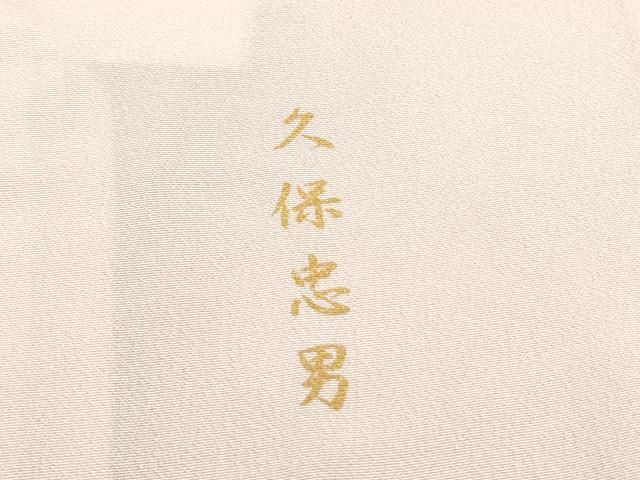 久保忠男